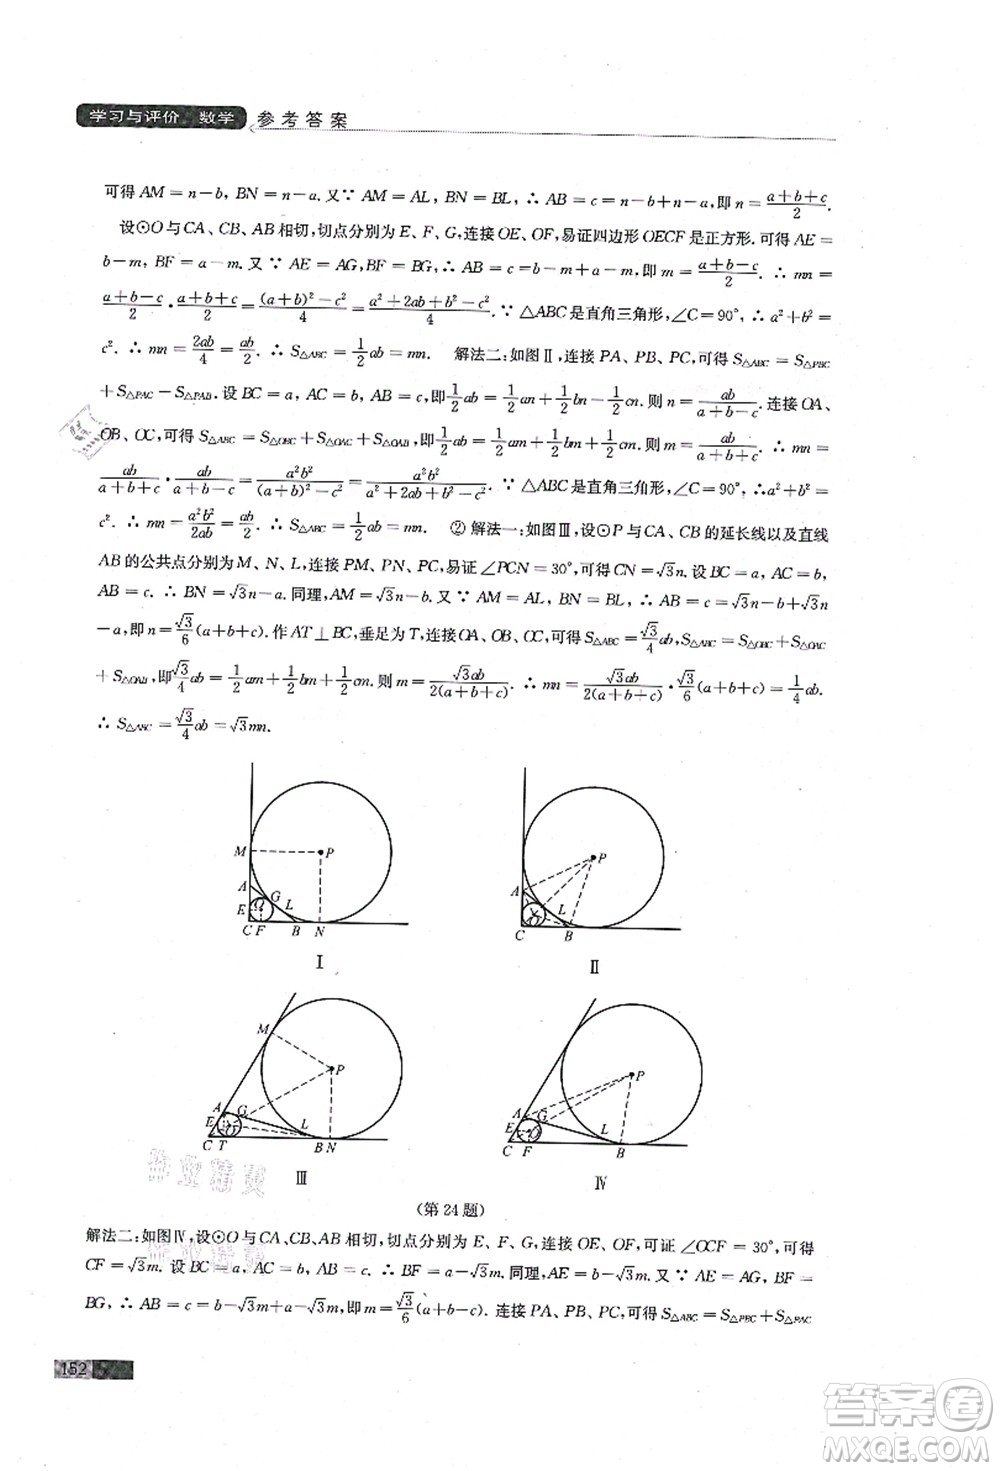 学习与评价 数学 参考答案
可得 AM＝n－b, BN＝n－a. 又∵ AM＝AL, BN＝BL, ∴ AB＝c＝n－b＋n－a, 即 n＝(a＋b＋c)/2.
设⊙O 与 CA、CB、AB 相切, 切点分别为 E、F、G, 连接 OE、OF, 易证四边形 OECF 是正方形. 可得 AE＝
b－m, BF＝a－m. 又∵ AE＝AG, BF＝BG, ∴ AB＝c＝b－m＋a－m, 即 m＝(a＋b－c)/2. ∴ mn＝
(a＋b－c)/2·(a＋b＋c)/2＝((a＋b)²－c²)/4＝(a²＋2ab＋b²－c²)/4. ∵ △ABC 是直角三角形, ∠C＝90°, ∴ a²＋b²＝
c². ∴ mn＝2ab/4＝ab/2. ∴ S△ABC＝1/2ab＝mn. 解法二: 如图Ⅱ, 连接 PA、PB、PC, 可得 S△ABC＝S△PBC
＋S△PAC－S△PAB. 设 BC＝a, AC＝b, AB＝c, 即1/2ab＝1/2an＋1/2bn－1/2cn. 则 n＝ab/(a＋b－c). 连接 OA、
OB、OC, 可得 S△ABC＝S△OBC＋S△OAC＋S△OAB, 即1/2ab＝1/2am＋1/2bm＋1/2cm. 则 m＝ab/(a＋b＋c). ∴ mn＝
ab/(a＋b＋c)·ab/(a＋b－c)＝a²b²/((a＋b)²－c²)＝a²b²/(a²＋2ab＋b²－c²). ∵ △ABC 是直角三角形, ∠C＝90°, ∴a²＋b²＝
c². ∴ mn＝a²b²/2ab＝ab/2. ∴ S△ABC＝1/2ab＝mn. ② 解法一: 如图Ⅲ, 设⊙P 与 CA、CB 的延长线以及直线
AB 的公共点分别为 M、N、L, 连接 PM、PC、PN, 易证∠PCN＝30°, 可得 CN＝√3n. 设 BC＝a, AC＝b,
AB＝c. ∴ BN＝√3n－a. 同理, AM＝√3n－b. 又∵ AM＝AL, BN＝BL, ∴ AB＝c＝√3n－b＋√3n
－a, 即 n＝√3/6(a＋b＋c). 作 AT⊥BC, 垂足为 T, 连接 OA、OB、OC, 可得 S△ABC＝√3/4ab, S△ABC＝S△OBC＋S△OAC
＋S△OAB, 即√3/4ab＝1/2am＋1/2bm＋1/2cm. 则 m＝√3ab/2(a＋b＋c). ∴ mn＝√3ab/2(a＋b＋c)·√3/6(a＋b＋c)＝1/4ab.
∴ S△ABC＝√3/4ab＝√3mn.
M P A G E O L C F B N
Ⅰ
P A L C B
Ⅱ
M P A G E O L C T B N
Ⅲ
P A G E L C F B
Ⅳ
(第 24 题)
解法二: 如图Ⅳ, 设⊙O 与 CA、CB、AB 相切, 切点分别为 E、F、G, 连接 OE、OF, 可证∠OCF＝30°, 可得
CF＝√3m. 设 BC＝a, AC＝b, AB＝c. ∴ BF＝a－√3m. 同理, AE＝b－√3m. 又∵ AE＝AG, BF＝
BG, ∴ AB＝c＝b－√3m＋a－√3m, 即 m＝√3/6(a＋b－c). 连接 PA、PB、PC, 可得 S△ABC＝S△PBC＋S△PAC
152
答案圈
MXQE.COM
作业精灵